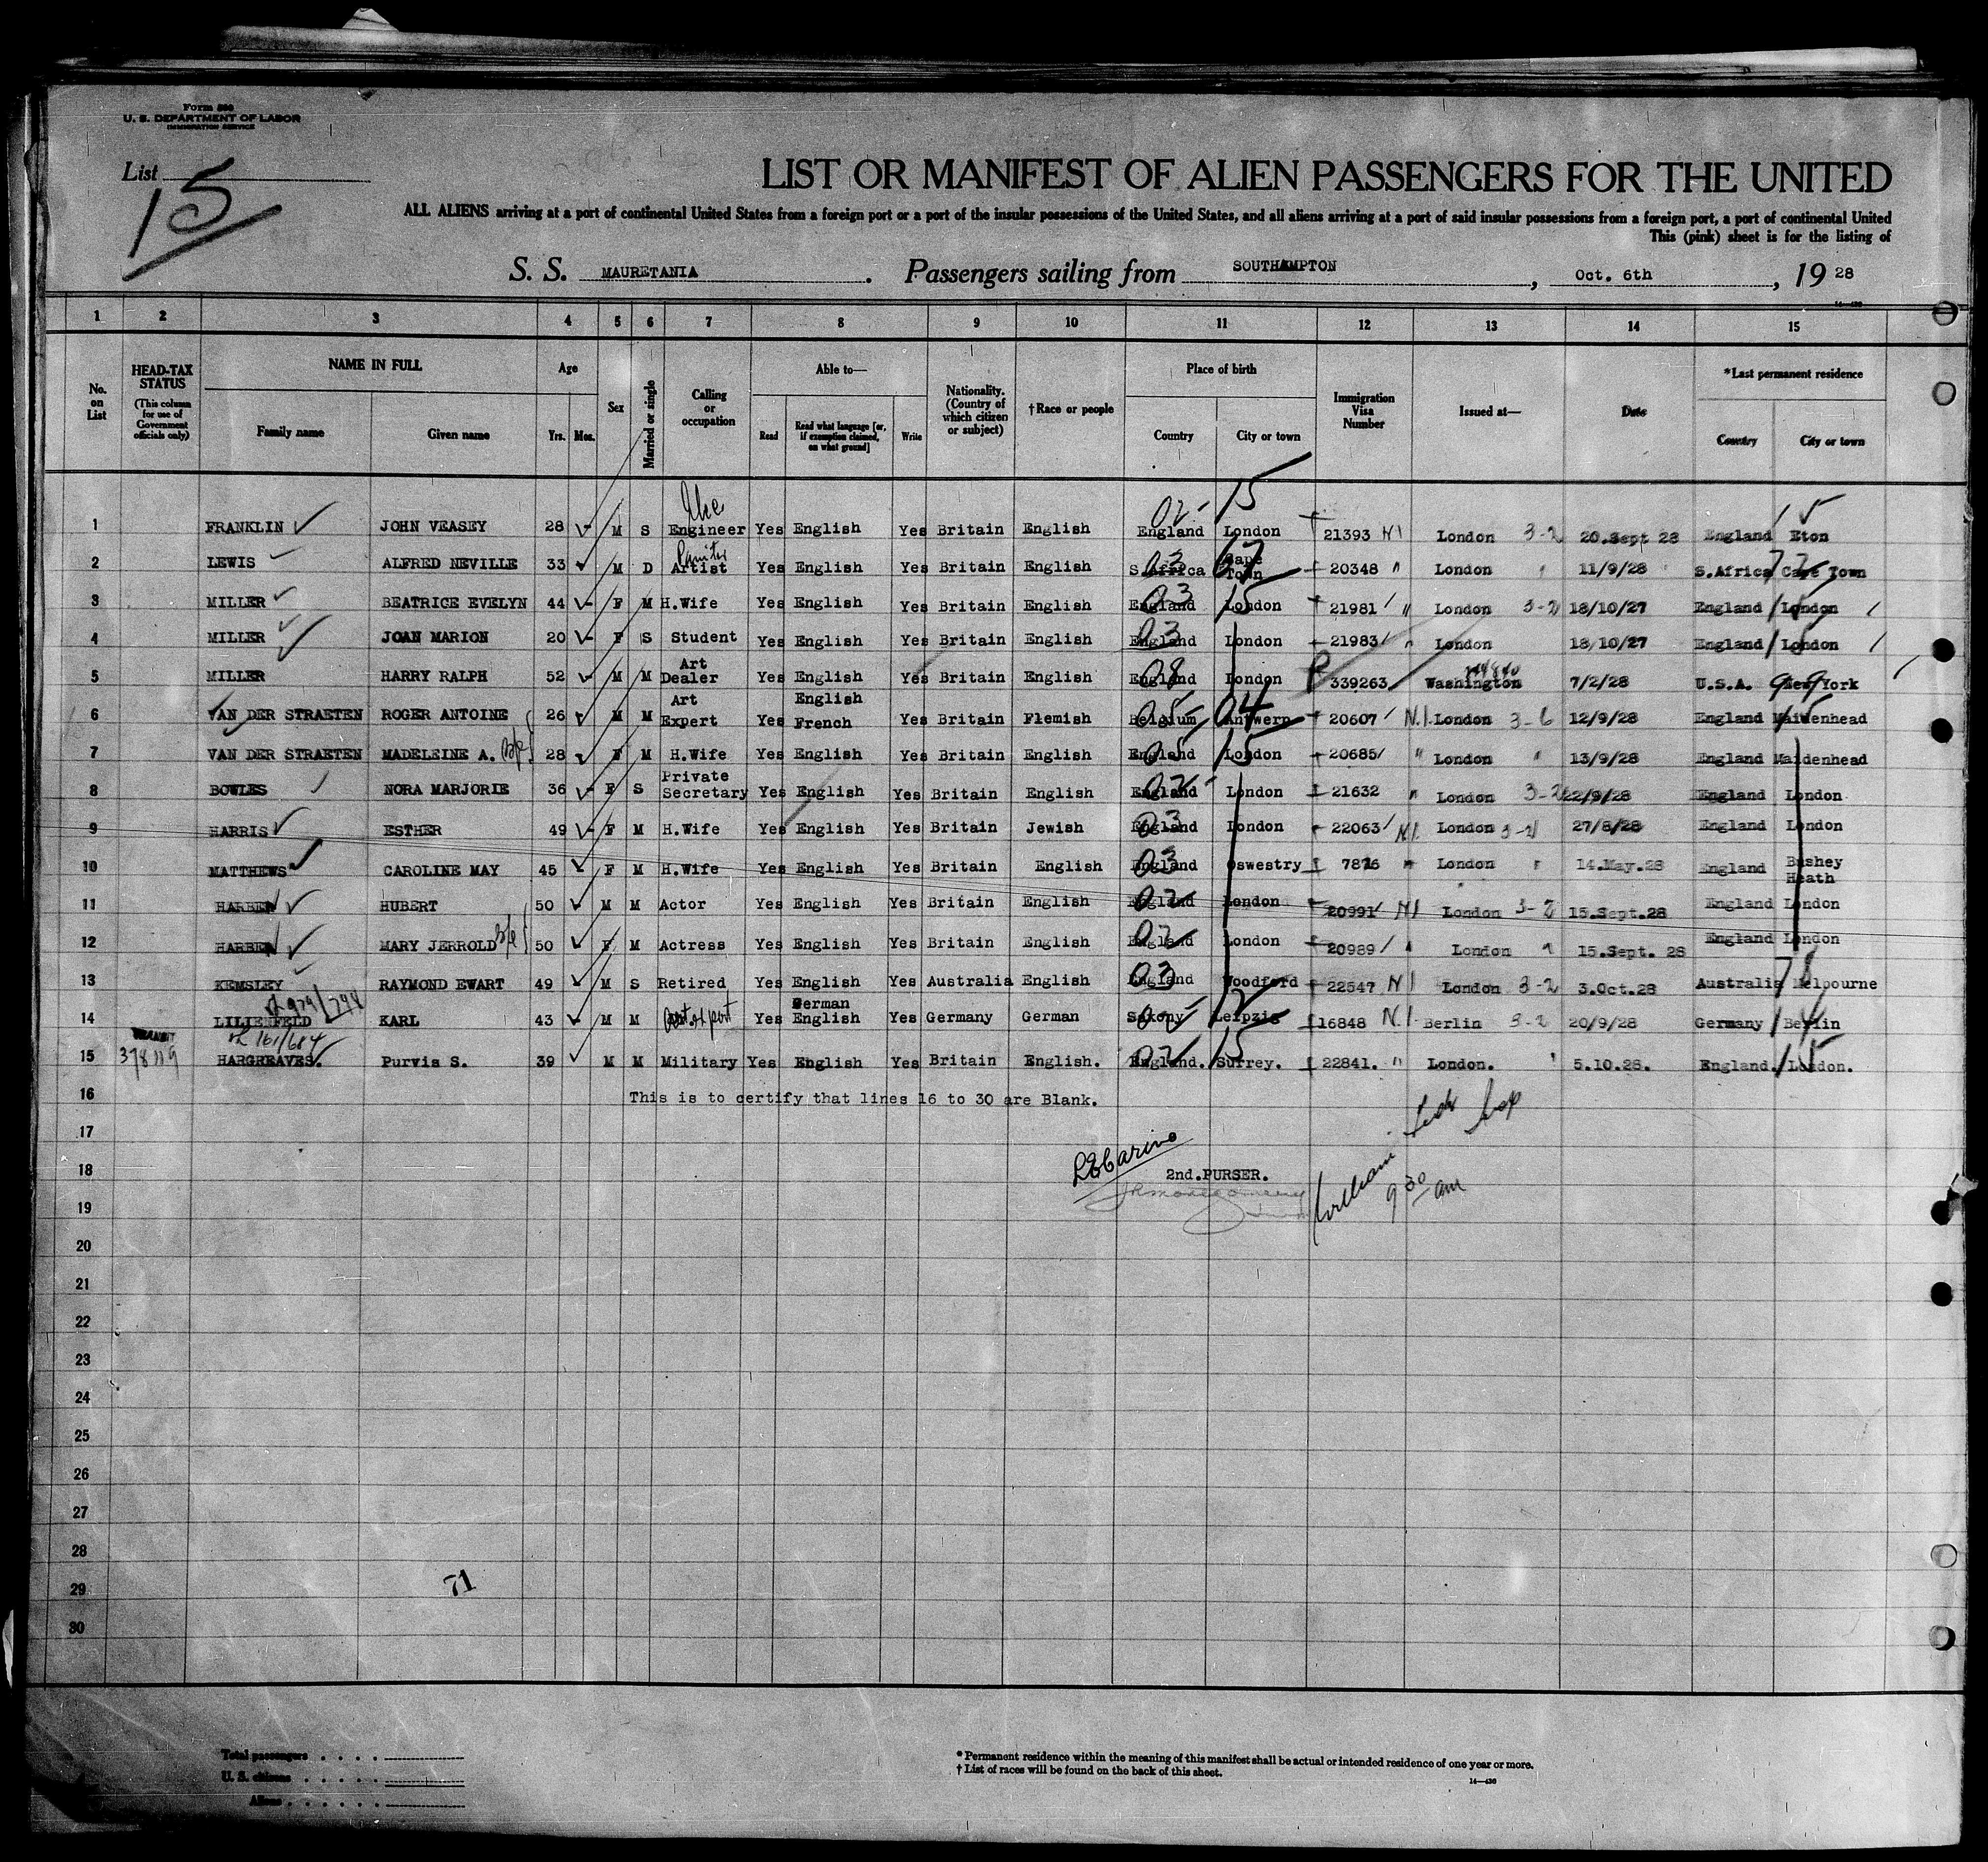 Form 500
U. S. DEPARTMENT OF LABOR
IMMIGRATION SERVICE
List
15
LIST OR MANIFEST OF ALIEN PASSENGERS FOR THE UNITED
ALL ALIENS arriving at a port of continental United States from a foreign port or a port of the insular possessions of the United States, and all aliens arriving at a port of said insular possessions from a foreign port, a port of continental United
This (pink) sheet is for the listing of
S. S. MAURETANIA. Passengers sailing from SOUTHAMPTON, Oct. 6th, 19 28
14—430
1 2 3 4 5 6 7 8 9 10 11 12 13 14 15
No. on List
HEAD-TAX STATUS (This column for use of Government officials only)
NAME IN FULL Family name Given name
Age Yrs. Mos.
Sex
Married or single
Calling or occupation
Able to— Read Read what language [or, if exemption claimed, on what ground] Write
Nationality. (Country of which citizen or subject)
†Race or people
Place of birth Country City or town
Immigration Visa Number
Issued at—
Date
*Last permanent residence Country City or town
1 FRANKLIN JOHN VEASEY 28 M S Engineer Yes English Yes Britain English England London 21393 London 3-2 20.Sept 28 England Eton
2 LEWIS ALFRED NEVILLE 33 M D Artist Yes English Yes Britain English S.Africa Cape Town 20348 " London 11/9/28 S.Africa Cape Town
3 MILLER BEATRICE EVELYN 44 F M H.Wife Yes English Yes Britain English England London 21981 " London 3-2 18/10/27 England London
4 MILLER JOAN MARION 20 F S Student Yes English Yes Britain English England London 21983 " London 18/10/27 England London
5 MILLER HARRY RALPH 52 M M Art Dealer Yes English Yes Britain English England London 339263 Washington 7/2/28 U.S.A. New York
6 VAN DER STRAETEN ROGER ANTOINE 26 M M Art Expert Yes English French Yes Britain Flemish Belgium Antwerp 20607 N.I. London 3-6 12/9/28 England Maidenhead
7 VAN DER STRAETEN MADELEINE A. 28 F M H.Wife Yes English Yes Britain English England London 20685 " London " 13/9/28 England Maidenhead
8 BOWLES NORA MARJORIE 36 F S Private Secretary Yes English Yes Britain English England London 21632 " London 3-2 22/9/28 England London
9 HARRIS ESTHER 49 F M H.Wife Yes English Yes Britain Jewish England London 22063 N.I. London 3-2 27/8/28 England London
10 MATTHEWS CAROLINE MAY 45 F M H.Wife Yes English Yes Britain English England Oswestry 7876 " London " 14.May.28 England Bushey Heath
11 HARBEN HUBERT 50 M M Actor Yes English Yes Britain English England London 20991 NI London 3-2 15.Sept.28 England London
12 HARBEN MARY JERROLD 50 F M Actress Yes English Yes Britain English England London 20989 " London " 15.Sept. 28 England London
13 KEMSLEY RAYMOND EWART 49 M S Retired Yes English Yes Australia English England Woodford 22547 NI London 3-2 3.Oct.28 Australia Melbourne
14 LILIENFELD KARL 43 M M Art expert Yes German English Yes Germany German Saxony Leipzig 16848 N.I. Berlin 3-2 20/9/28 Germany Berlin
TRANSIT
15 HARGREAVES. Purvis S. 39 M M Military Yes English Yes Britain English. England. Surrey. 22841. " London. " 5.10.28. England. London.
16 This is to certify that lines 16 to 30 are Blank.
17
18 2nd.PURSER.
9 30 am
19
20
21
22
23
24
25
26
27
28
29 71
30
Total passengers
U. S. citizens
Aliens
*Permanent residence within the meaning of this manifest shall be actual or intended residence of one year or more.
†List of races will be found on the back of this sheet.
14—430